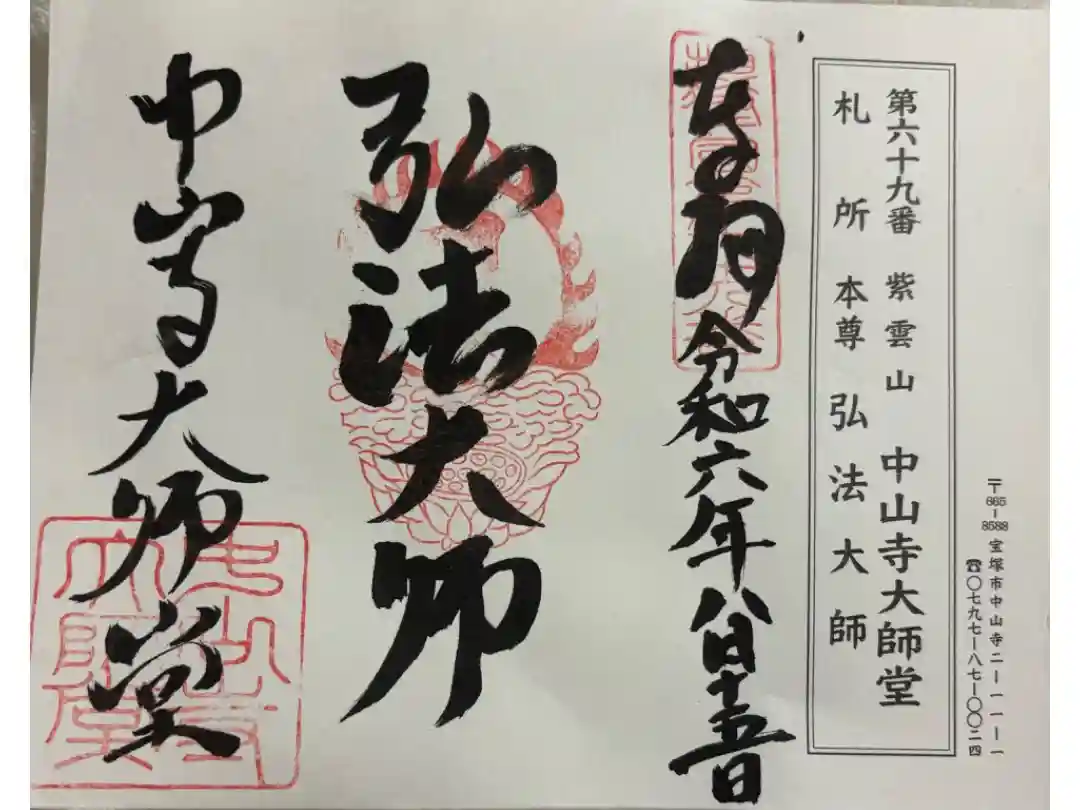 〒665-8588 宝塚市中山寺二ー一一ー一
☎〇七九七ー八七ー〇〇二四
第六十九番 紫雲山 中山寺大師堂
札所本尊 弘法大師
奉拝 令和六年八月十五日
弘法大師
中山寺大師堂
中山寺
大師堂